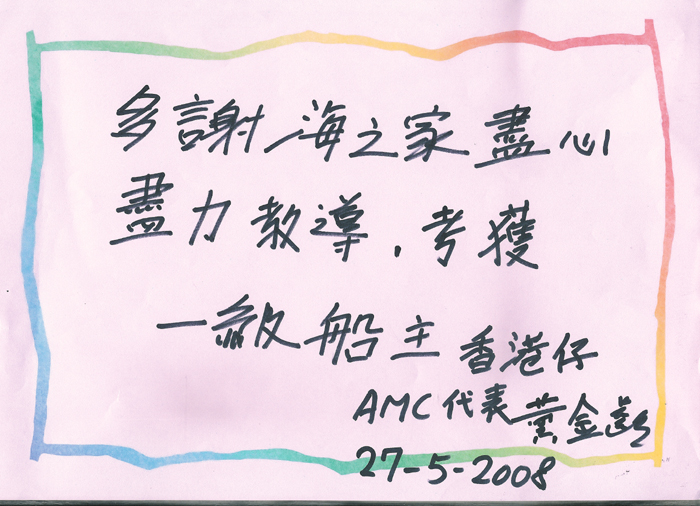 多謝海之家盡心
盡力教導，考獲
一級船主
香港仔
AMC代表黃金
27-5-2008